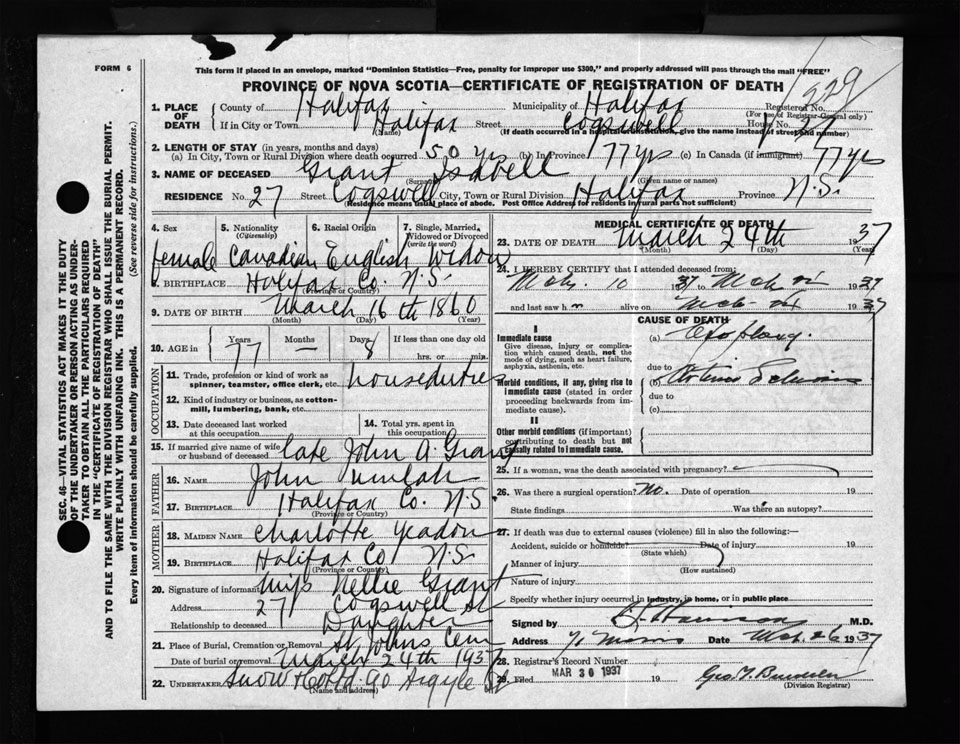 FORM 6
This form if placed in an envelope, marked "Dominion Statistics—Free, penalty for improper use $300," and properly addressed will pass through the mail "FREE"
PROVINCE OF NOVA SCOTIA—CERTIFICATE OF REGISTRATION OF DEATH
1. PLACE OF DEATH County of Halifax Municipality of Halifax Registered No. 
(For use of Registrar-General only)
If in City or Town Halifax Street Cogswell House No. 27
(Name) (If death occurred in a hospital or institution, give the name instead of street and number)
2. LENGTH OF STAY (in years, months and days)
(a) In City, Town or Rural Division where death occurred 50 yrs (b) In Province 77 yrs (c) In Canada (if immigrant) 77 yrs
3. NAME OF DECEASED Grant Isabell
(Surname) (Given name or names)
RESIDENCE No. 27 Street Cogswell City, Town or Rural Division Halifax Province N.S.
(Residence means usual place of abode. Post Office Address for residents in rural parts not sufficient)
4. Sex 5. Nationality (Citizenship) 6. Racial Origin 7. Single, Married, Widowed or Divorced (write the word)
female Canadian English Widow
8. BIRTHPLACE Halifax Co. N.S.
(Province or Country)
9. DATE OF BIRTH March 16th 1860
(Month) (Day) (Year)
10. AGE in Years Months Days If less than one day old
77 — 8 hrs. or min.
OCCUPATION
11. Trade, profession or kind of work as spinner, teamster, office clerk, etc. houseduties
12. Kind of industry or business, as cotton-mill, lumbering, bank, etc.
13. Date deceased last worked at this occupation
14. Total yrs. spent in this occupation
15. If married give name of wife or husband of deceased late John A. Grant
FATHER
16. NAME John
17. BIRTHPLACE Halifax Co. N.S.
(Province or Country)
MOTHER
18. MAIDEN NAME Charlotte Yeadon
19. BIRTHPLACE Halifax Co N.S.
(Province or Country)
20. Signature of informant Miss Nellie Grant
Address 27 Cogswell St
Relationship to deceased Daughter
21. Place of Burial, Cremation or Removal St. Johns Cem
Date of burial or removal March 24th 1937
22. UNDERTAKER Snow & Co Ltd 90 Argyle St
(Name and address)
MEDICAL CERTIFICATE OF DEATH
23. DATE OF DEATH March 24th 1937
(Month) (Day) (Year)
24. I HEREBY CERTIFY that I attended deceased from:
Mch. 10 1937 to Mch 1937
and last saw h alive on Mch 1937
CAUSE OF DEATH
I
Immediate cause
Give disease, injury or complication which caused death, not the mode of dying, such as heart failure, asphyxia, asthenia, etc.
(a)
due to
Morbid conditions, if any, giving rise to immediate cause (stated in order proceeding backwards from immediate cause).
(b)
due to
(c)
II
Other morbid conditions (if important) contributing to death but not causally related to immediate cause.
25. If a woman, was the death associated with pregnancy?
26. Was there a surgical operation? No. Date of operation 19
State findings Was there an autopsy?
27. If death was due to external causes (violence) fill in also the following:—
Accident, suicide or homicide? Date of injury 19
(State which)
Manner of injury
(How sustained)
Nature of injury
Specify whether injury occurred in industry, in home, or in public place
Signed by M.D.
Address Date Mch. 26 1937
28. Registrar's Record Number
29. Filed MAR 30 1937 19
(Division Registrar)
SEC. 46—VITAL STATISTICS ACT MAKES IT THE DUTY OF THE UNDERTAKER OR PERSON ACTING AS UNDERTAKER TO OBTAIN ALL THE PARTICULARS REQUIRED IN THE "CERTIFICATE OF REGISTRATION OF DEATH" AND TO FILE THE SAME WITH THE DIVISION REGISTRAR WHO SHALL ISSUE THE BURIAL PERMIT.
WRITE PLAINLY WITH UNFADING INK. THIS IS A PERMANENT RECORD.
Every item of information should be carefully supplied. (See reverse side for instructions.)